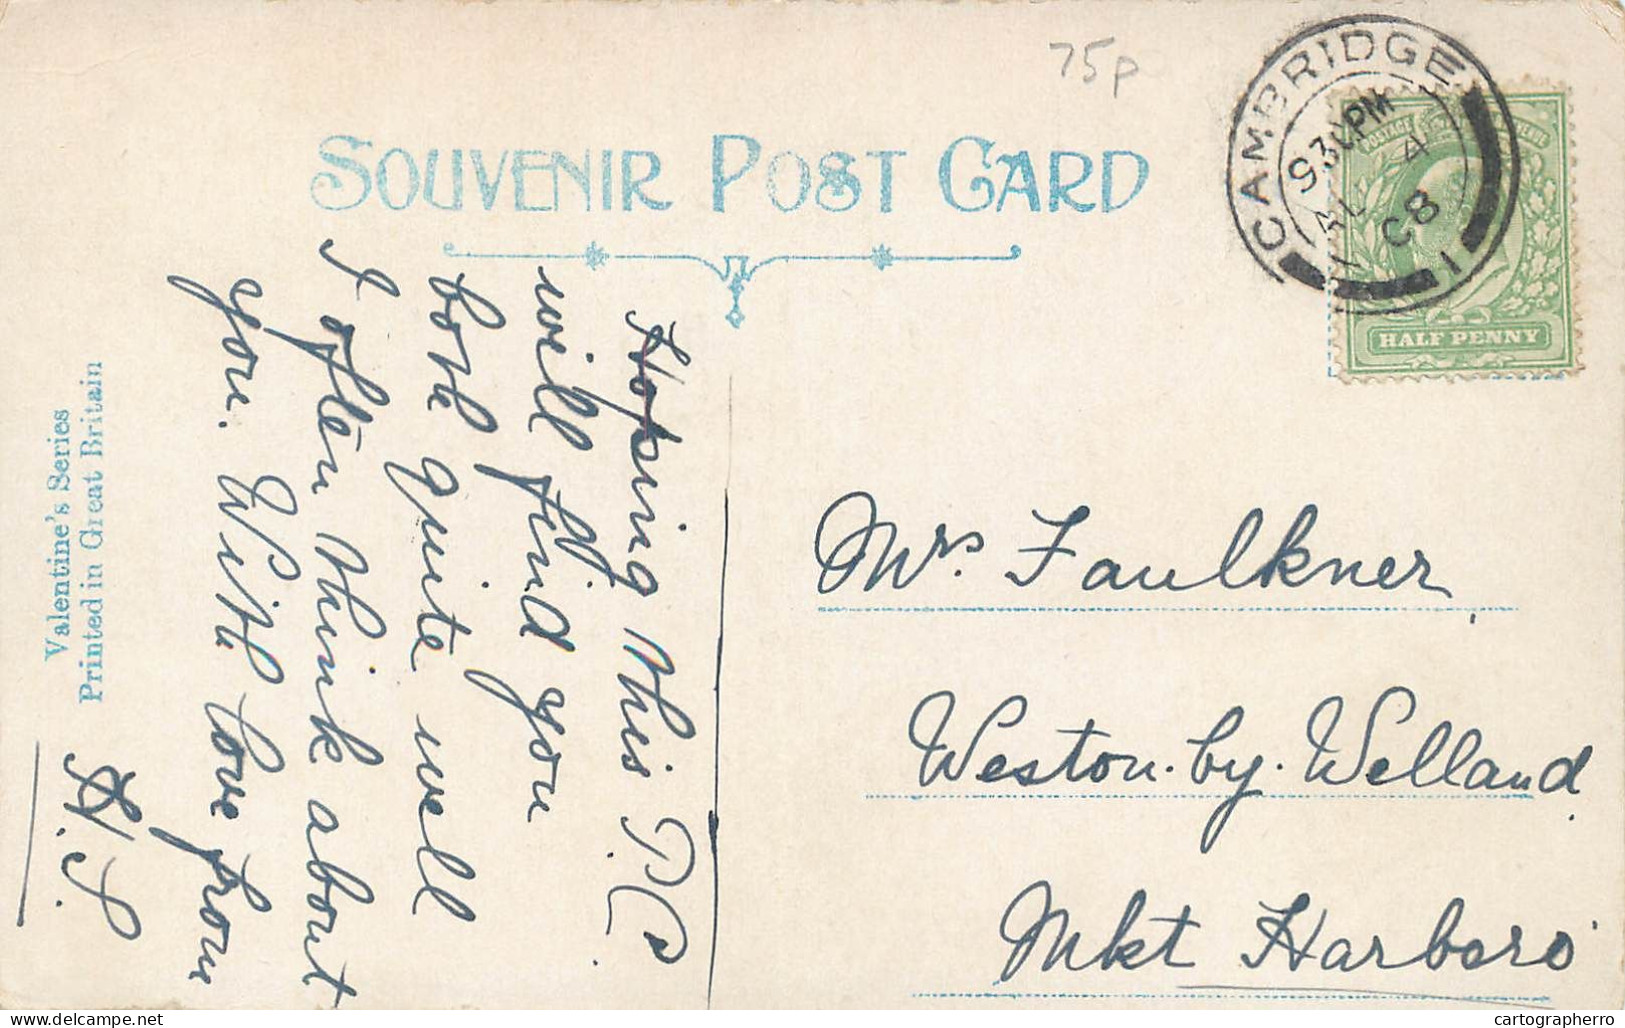 75p
SOUVENIR POST CARD
CAMBRIDGE
9 30 PM
AU 4
08
1
POSTAGE
HALF PENNY
Hoping this P.C.
will find you
both quite well
I often think about
you. With love from
H. S.
Mrs Faulkner,
Weston-by-Welland,
Mkt Harboro'
Valentine's Series
Printed in Great Britain
cartographerro